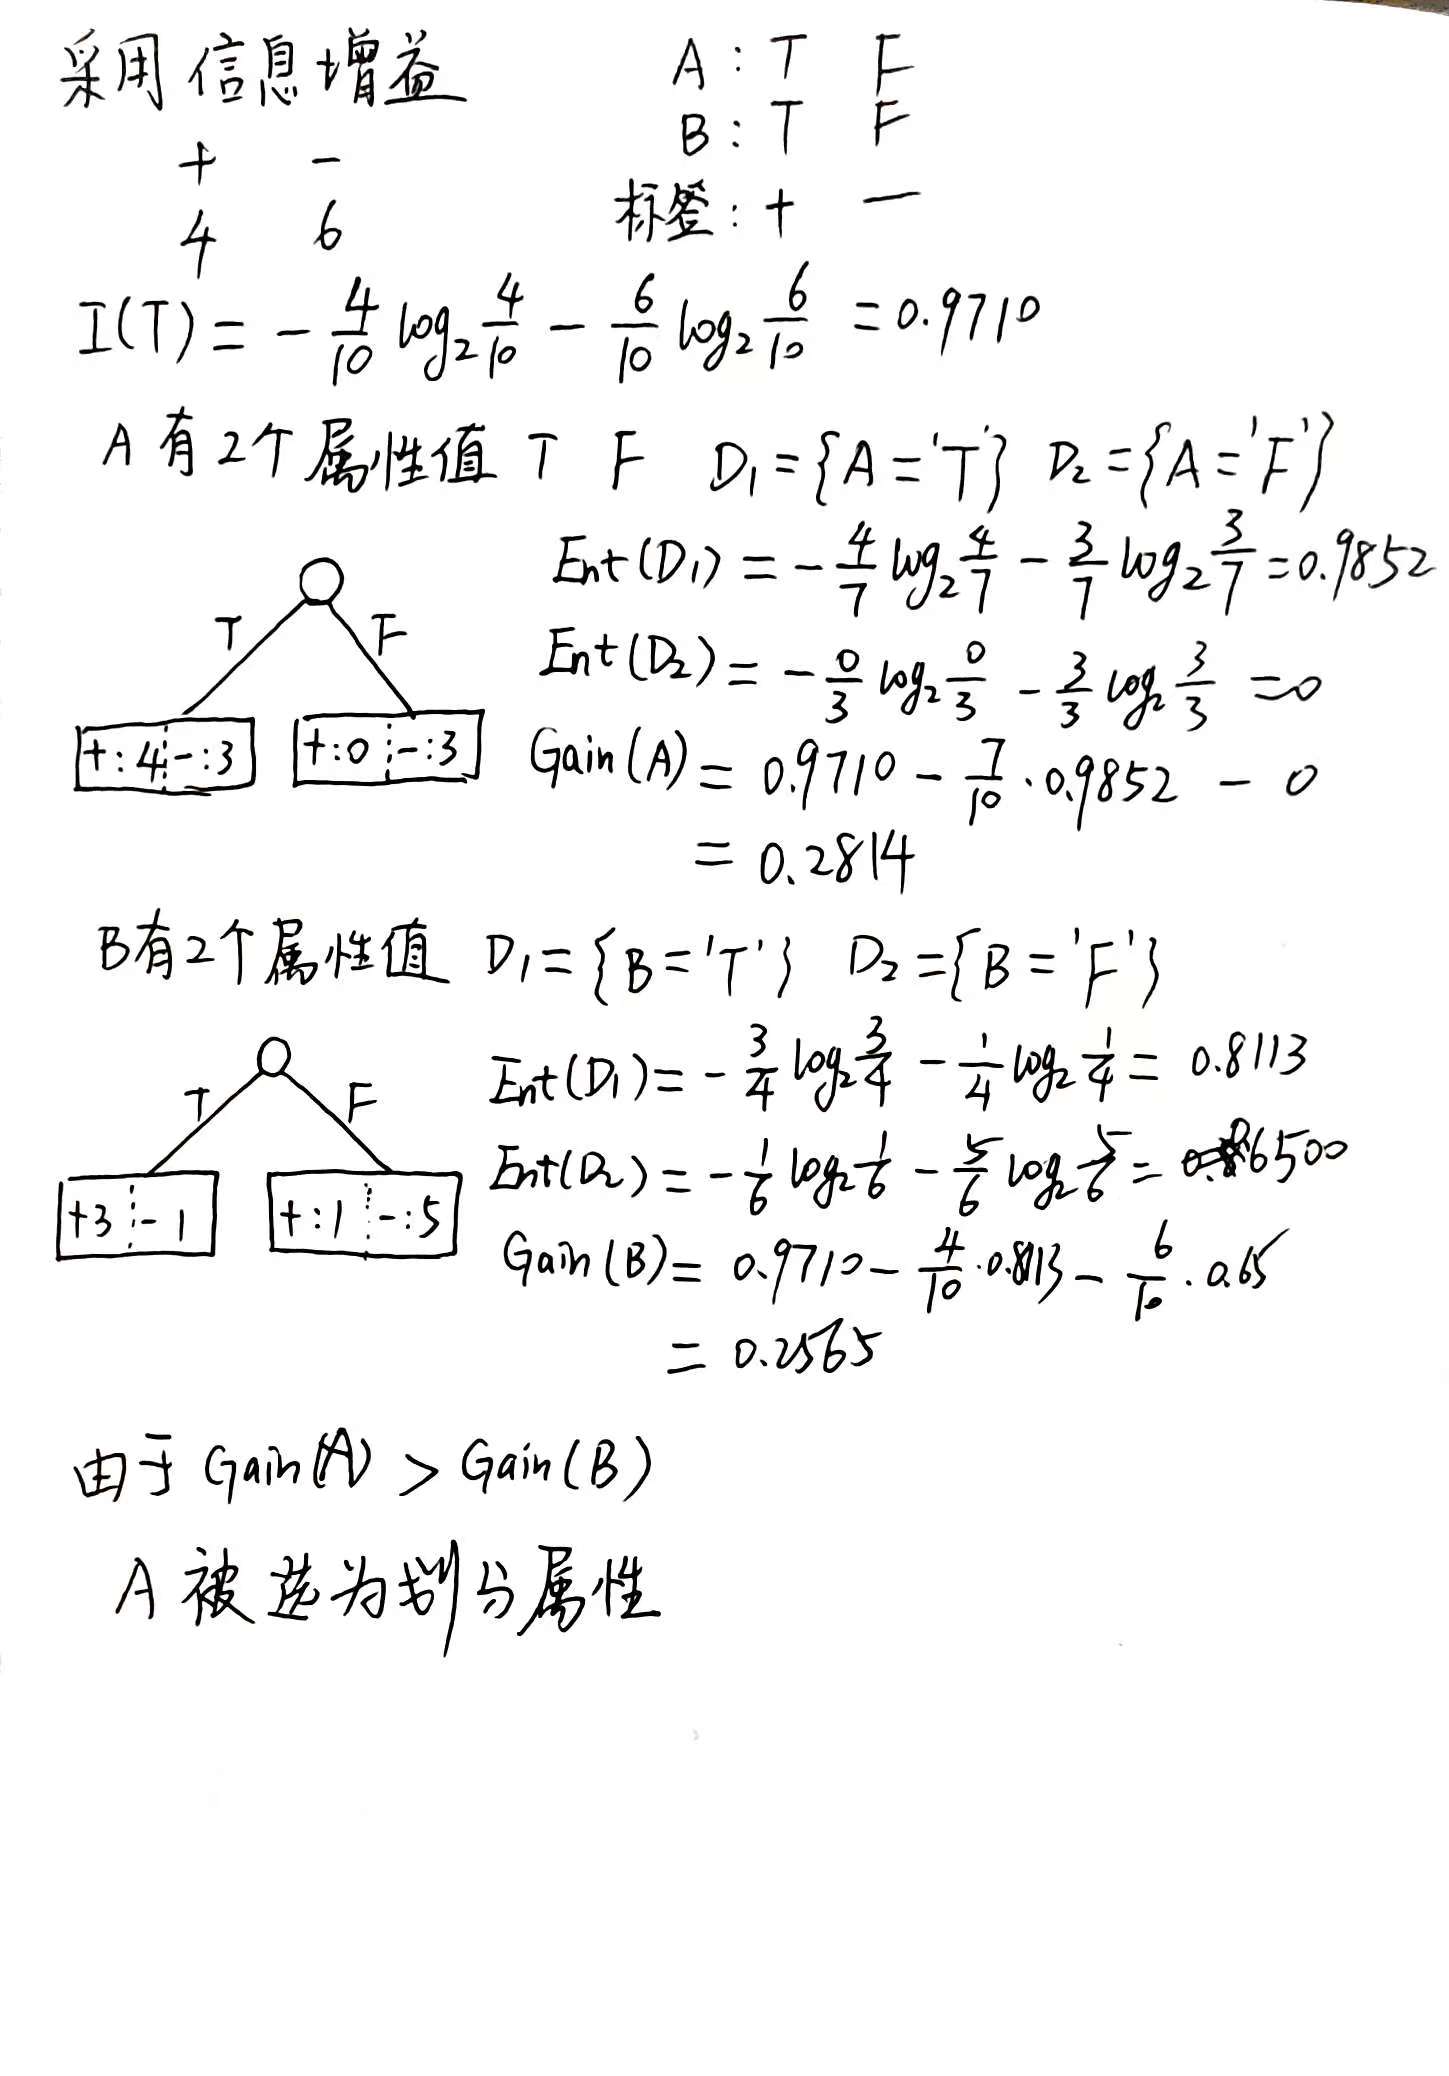 采用信息增益 A：T F
+ - B：T F
4 6 标签：+ -
I(T) = - 4/10 log₂ 4/10 - 6/10 log₂ 6/10 = 0.9710
A有2个属性值 T F D₁={A='T'} D₂={A='F'}
Ent(D₁) = - 4/7 log₂ 4/7 - 3/7 log₂ 3/7 = 0.9852
T F
Ent(D₂) = - 0/3 log₂ 0/3 - 3/3 log₂ 3/3 = 0
+:4 -:3 +:0 -:3
Gain(A) = 0.9710 - 7/10 · 0.9852 - 0
= 0.2814
B有2个属性值 D₁={B='T'} D₂={B='F'}
Ent(D₁) = - 3/4 log₂ 3/4 - 1/4 log₂ 1/4 = 0.8113
T F
Ent(D₂) = - 1/6 log₂ 1/6 - 5/6 log₂ 5/6 = 0.6500
+3 -1 +:1 -:5
Gain(B) = 0.9710 - 4/10 · 0.8113 - 6/10 · 0.65
= 0.2565
由于 Gain(A) > Gain(B)
A被选为划分属性